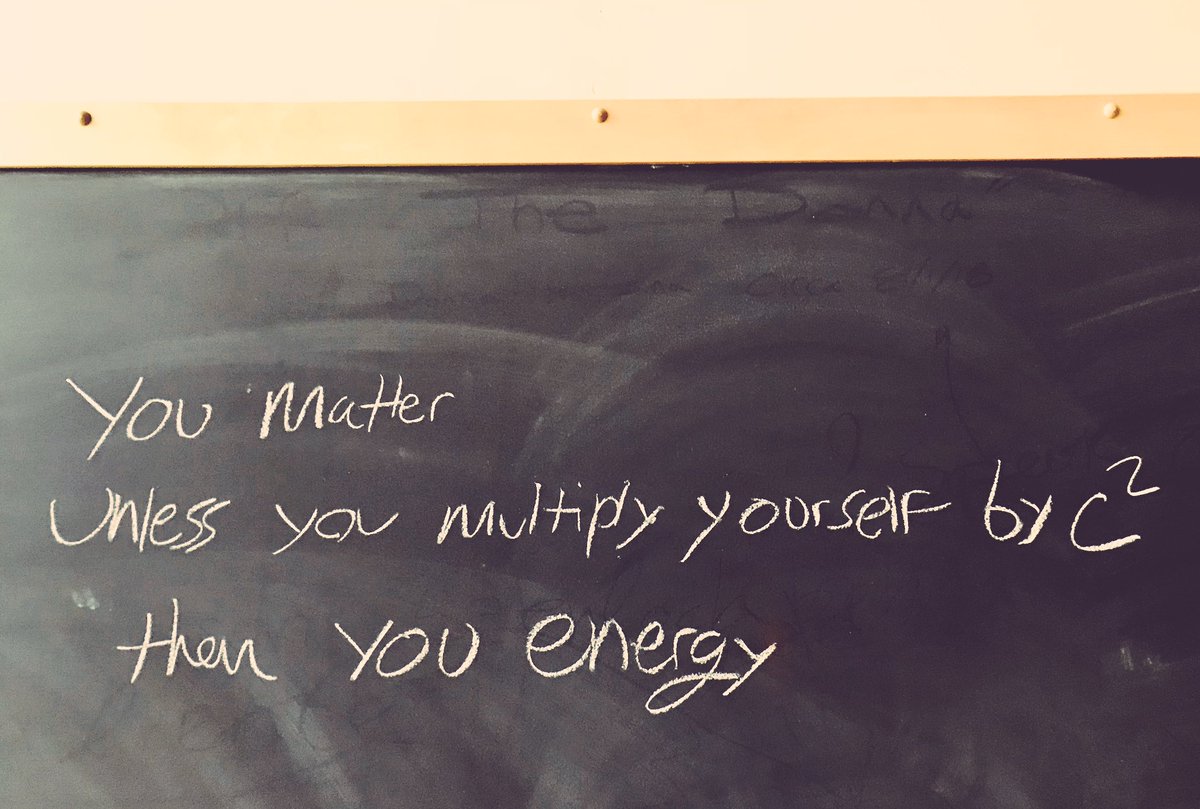 The Donna"
You Matter
Unless you multiply yourself by c²
then you energy